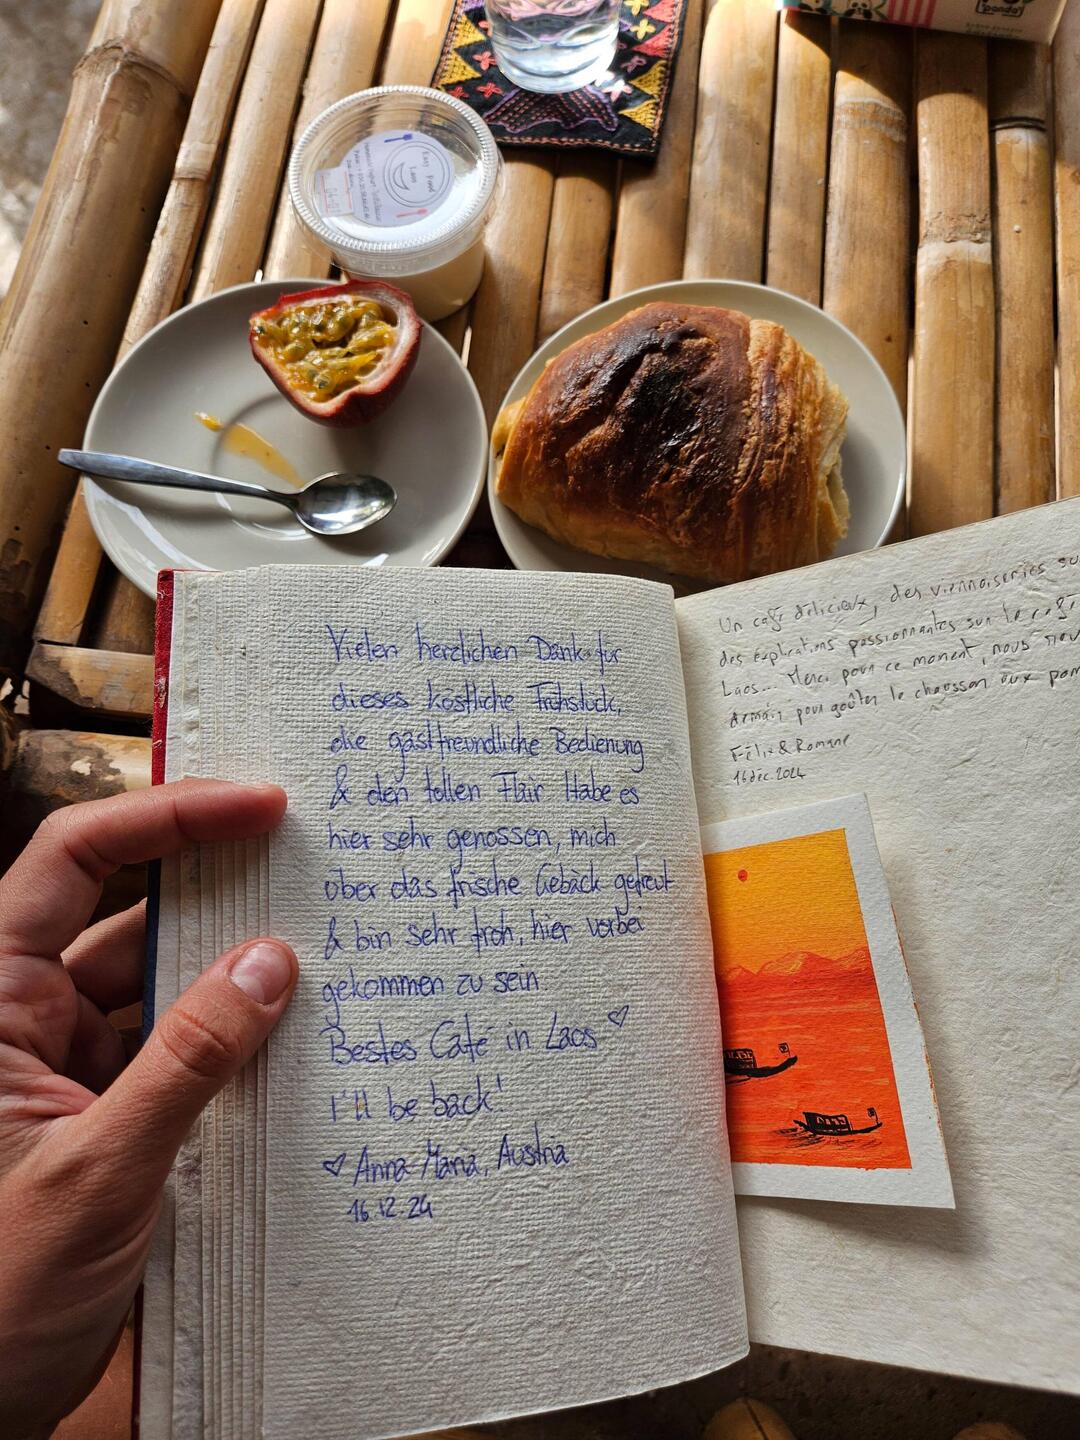 panda
Easy Food
Laos
Vielen herzlichen Dank für
dieses köstliche Frühstück,
die gastfreundliche Bedienung
& den tollen Flair Habe es
hier sehr genossen, mich
über das frische Gebäck gefreut
& bin sehr froh, hier vorbei
gekommen zu sein.
Bestes Café in Laos ♡
I'll be back!
♡ Anna-Maria, Austria
16.12.24
Un café délicieux, des viennoiseries su
des explications passionnantes sur le café
Laos... Merci pour ce moment, nous rev
demain pour goûter le chausson aux pom
Félix & Romane
16 déc. 2024